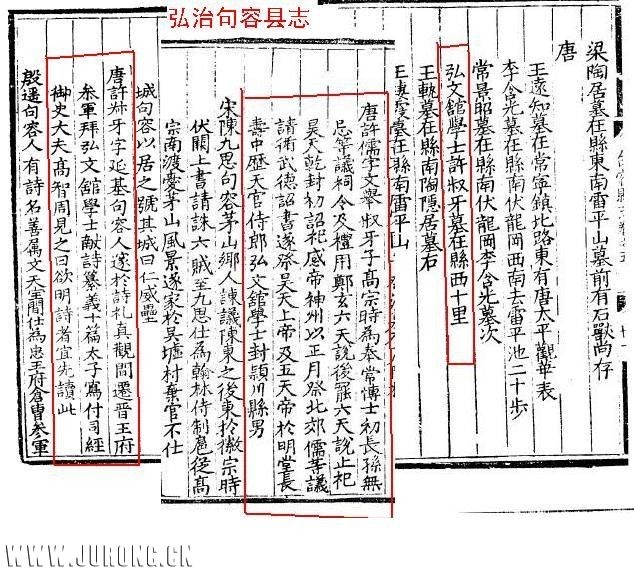 弘治句容县志
梁陶居墓在縣東南雷平山墓前有石獸尚存
唐
王遠知墓在常寧鎮北路東有唐太平觀華表
李含光墓在縣南伏龍岡西南去雷平池二十步
常景昭墓在縣南伏龍岡李含光墓次
弘文舘學士許叔牙墓在縣西十里
王軌墓在縣南陶隱居墓右
王棲霞墓在縣南雷平山
唐許儒字文舉叔牙子高宗時為奉常博士初長孫無
忌等議祠令及禮用鄭玄六天說後罷六天說止祀
昊天乾封初詔祀感帝神州以正月祭北郊儒等議
請術武德詔書遂祭昊天上帝及五天帝於明堂長
壽中歷天官侍郎弘文舘學士封潁川縣男
宋陳九思句容茅山鄉人諫議陳東之後東於徽宗時
伏闕上書請誅六賊至九思仕為翰林侍制扈從高
宗南渡愛茅山風景遂家於吳墟村棄官不仕
城句容以居之號其城曰仁威壘
唐許叔牙字延基句容人邃於詩禮貞觀間遷晉王府
叅軍拜弘文舘學士献詩纂義十篇太子寫付司經
御史大夫高智周見之曰欲明詩者宜先讀此
殷遥句容人有詩名善属文天寶間仕為忠王府倉曹參軍
WWW.JURONG.CN